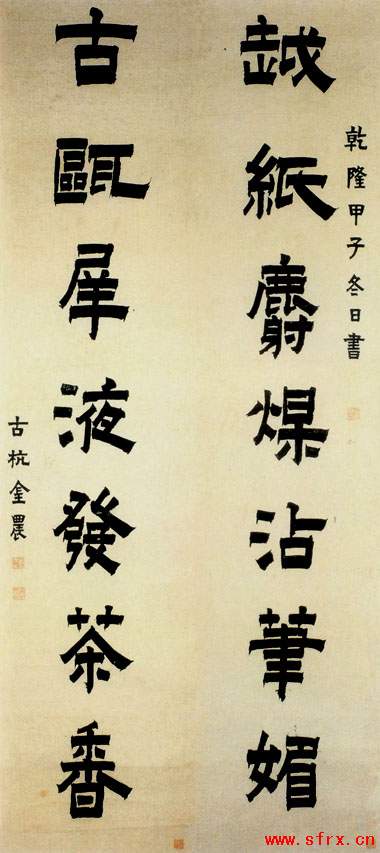 乾隆甲子冬日書
越紙麝煤沾筆媚
古甌犀液發茶香
古杭金農
www.sfrx.cn